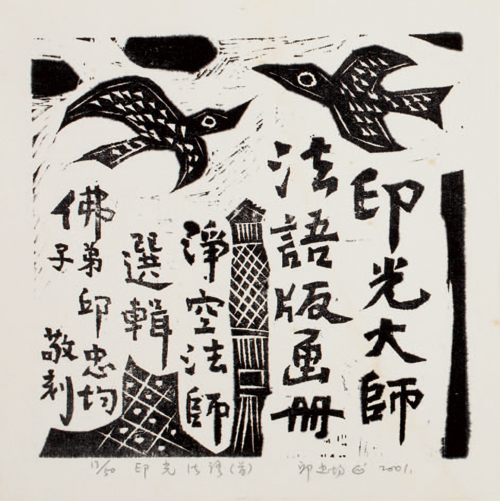 印光大師
法語版画册
淨空法師
選輯
佛弟子邱忠均
敬刻
13/50 印光法語(首) 邱忠均 2001.